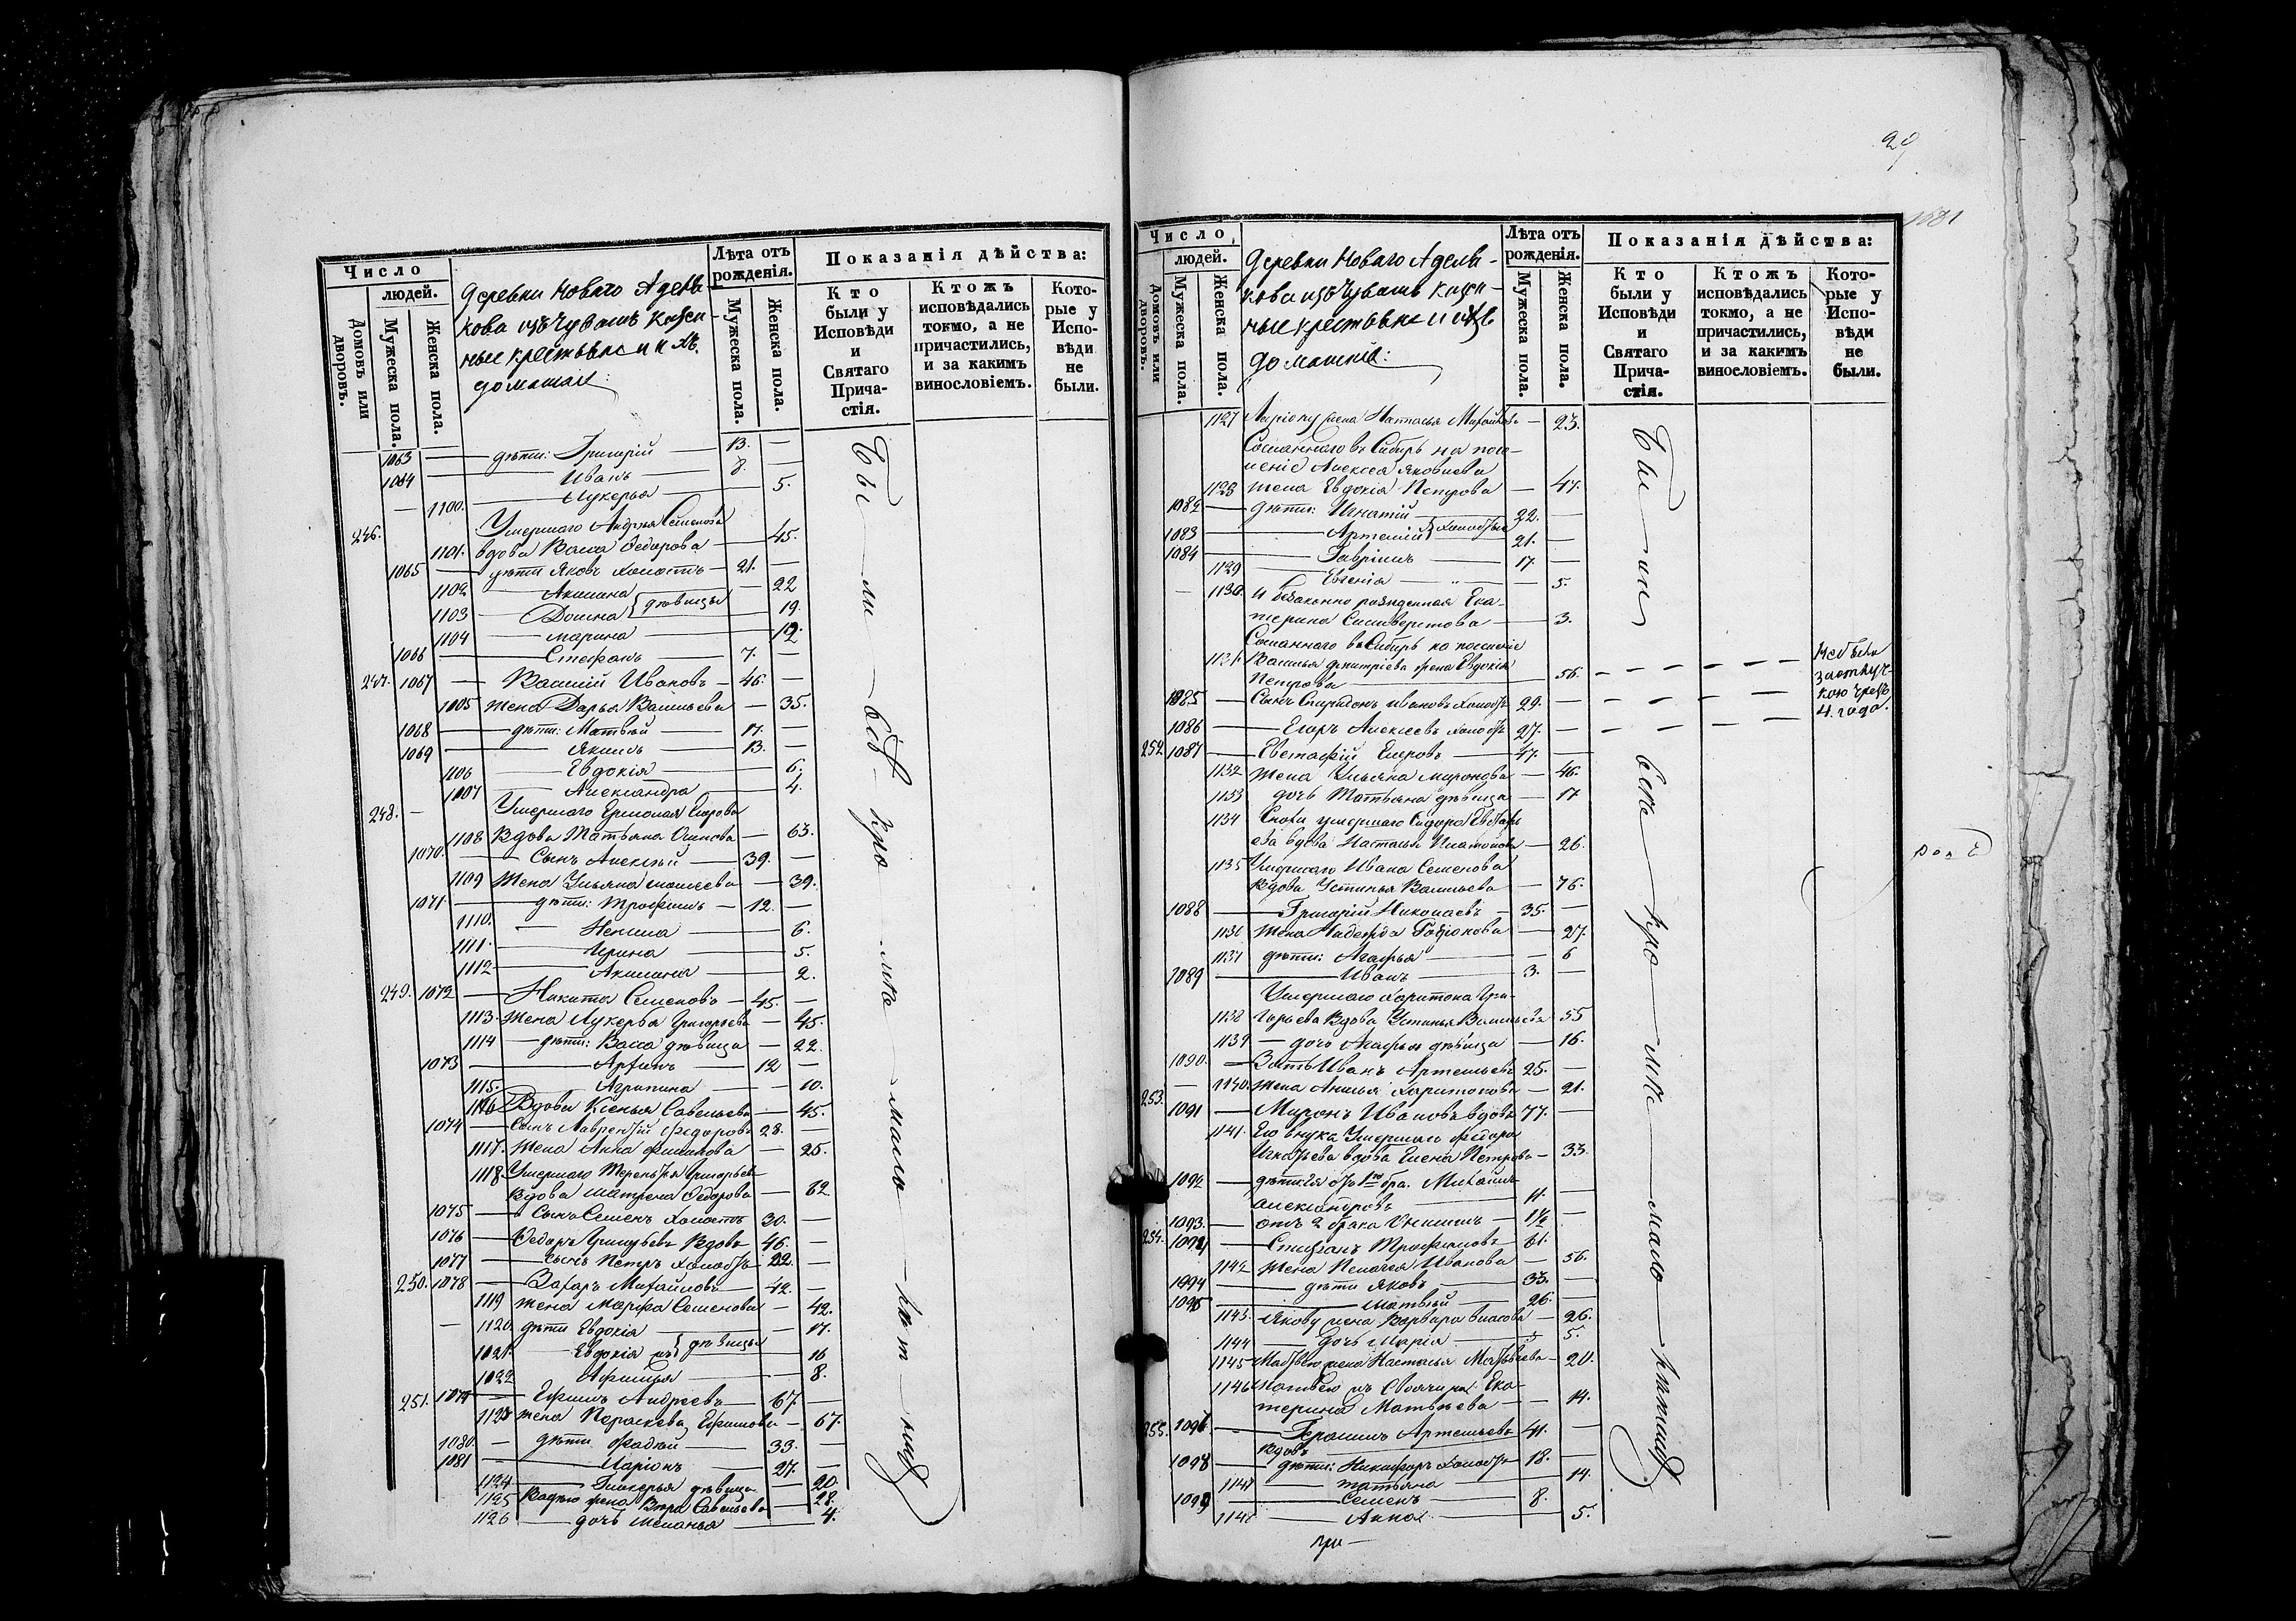 Число
людей.
Домовъ или дворовъ.
Мужеска пола.
Женска пола.
Деревни Новаго Адель-
кова изъ Чувашъ казен-
ные крестьяне и ихъ
домашніе:
Лѣта отъ рожденія.
Мужеска пола.
Женска пола.
Показанія дѣйства:
Кто были у Исповѣди и Святаго Прича-стія.
Ктожъ исповѣдались токмо, а не причастились, и за какимъ винословіемъ.
Кото-рые у Испо-вѣди не были.
1063 дѣти: Григорій 13.
1064 Иванъ 8.
1100. Лукерья 5.
246. Умершаго Андрея Семенова
1101. вдова Васса Федорова 45.
1065 дѣти Яковъ холостъ 21.
1102 Акилина 22
1103 Домна } дѣвицы 19.
1104 Марина 12.
1066 Стефанъ 7.
247. 1067 Василій Ивановъ 46.
1105 жена Дарья Васильева 35.
1068 дѣти: Матвѣй 17.
1069 Якимъ 13.
1106 Евдокія 6.
1107 Александра 4.
248. Умершаго Ермолая Егорова
1108 Вдова Татьяна Осипова 63.
1070. Сынъ Алексѣй 39.
1109 жена Ульяна 39.
1071 дѣти: Трофимъ 12.
1110. 6.
1111. Ирина 5.
1112 Акилина 2.
249. 1072 Никита Семеновъ 45.
1113. жена Лукерья Григорьева 45.
1114 дѣти: Васса дѣвица 22.
1073 12
1115. Агрипина 10.
1116 Вдова Ксенья Савельева 45.
1074 Сынъ Лаврентій Федоровъ 28.
1117. Жена Анна Филипова 25.
1118 Умершаго Терентья Григорьева
Вдова Матрена Федорова 62
1075 Сынъ Семенъ холостъ 30.
1076 Федоръ Григорьевъ вдовъ 46.
1077 сынъ Петръ холостъ 22.
250. 1078 Захаръ Михайловъ 42.
1119 жена Марфа Семенова 42.
1120. дѣти Евдокія 17.
1021. Евдокія } дѣвицы 16
1022 8.
251. 1079 Ефимъ Андреевъ 67.
1123 жена Параскева Ефимова 67.
1080. дѣти Фадѣй 33.
1081 Ларіонъ 27.
1124 Гликерья дѣвица 20.
1125 Фадѣю жена Вѣра Савельева 28.
1126 дочь Меланья 4.
Бы — ли — всѣ — кро — мѣ — мало — лѣт — нихъ
29
1081
Число
людей.
Домовъ или дворовъ.
Мужеска пола.
Женска пола.
Деревни Новаго Адель-
кова изъ Чувашъ казен-
ные крестьяне и ихъ
домашніе:
Лѣта отъ рожденія.
Мужеска пола.
Женска пола.
Показанія дѣйства:
Кто были у Исповѣди и Святаго Прича-стія.
Ктожъ исповѣдались токмо, а не причастились, и за какимъ винословіемъ.
Кото-рые у Испо-вѣди не были.
1127 Ларіону жена Настасья Михайлова 23.
Сосланнаго въ Сибирь на посе-
леніе Алексея Яковлева
1128 жена Евдокія Петрова 47.
1082 дѣти: Игнатій 22.
1083 Артемій } холосты 21.
1084 Гавріилъ 17.
1129 Евгенія 5.
1130. И беззаконно рожденная Ека-
терина Селиверстова 3.
Сосланнаго въ Сибирь на поселеніе
1131. Василья Дмитріева жена Евдокія
Петрова 56.
1085 Сынъ Спиридонъ Ивановъ холостъ 29.
1086 Егоръ Алексеевъ холостъ 27.
Не были
за отлуч-
кою чрезъ
4. года.
252 1087 Евстафій Егоровъ 47.
1132 жена Ульяна Миронова 46.
1133 дочь Татьяна дѣвица 17
1134 Сноха умершаго Сидора Евстафь-
ева вдова Настасья Платонова 26.
1135 Умершаго Ивана Семенова
вдова Устинья Васильева 76.
1088 Григорій Николаевъ 35.
1136 жена Надежда Родіонова 27.
1137 дѣти: Агафья 6
1089 Иванъ 3.
Умершаго Харитона Гри-
1138 горьева вдова Устинья Васильева 55
1139 дочь Агафья дѣвица 16.
1090. Зять Иванъ Артемьевъ 25.
1140. жена Анисья Харитонова 21.
253. 1091 Миронъ Ивановъ вдовъ 77.
1141. Его внука Умершаго Федора
Игнатьева вдова Елена Петрова 33.
1092 дѣти ея отъ 1го бра. Михаилъ
Александровъ 11.
1093. отъ 2 брака 1½
254. 1094 Стефанъ Трофимовъ 61.
1142 жена Пелагея Иванова 56.
1094 дѣти Яковъ 33.
1095 Матвѣй 26.
1143. Якову жена Варвара Власова 26.
1144 дочь Марія 5.
1145 Матвѣю жена Настасья Матвѣева 20.
1146
терина Матвѣева 14.
255. 1096. Герасимъ Артемьевъ 41.
вдовъ
1098 дѣти: Никифоръ холостъ 18.
1147 Татьяна 14.
1099 Семенъ 8.
1148 Анна 5.
Бы — ли — всѣ — кро — мѣ — мало — лѣтнихъ
при —